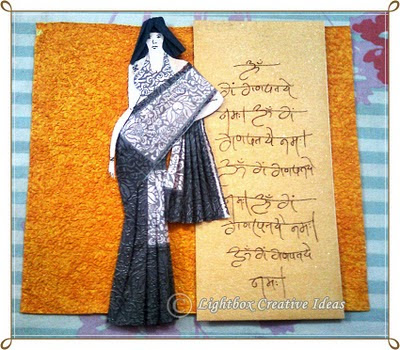 ॐ
गं गणपतये
नमः। ॐ गं
गणपतये नमः।
ॐ गं गणपतये
नमः। ॐ गं
गणपतये नमः।
ॐ गं गणपतये
नमः।
© Lightbox Creative Ideas